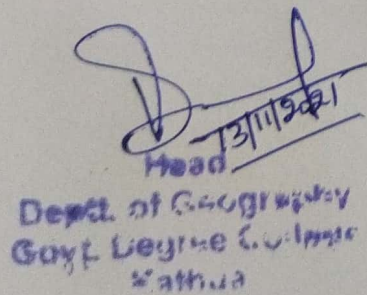 13/11/2021
Head
Deptt. of Geography
Govt. Degree College
Kathua